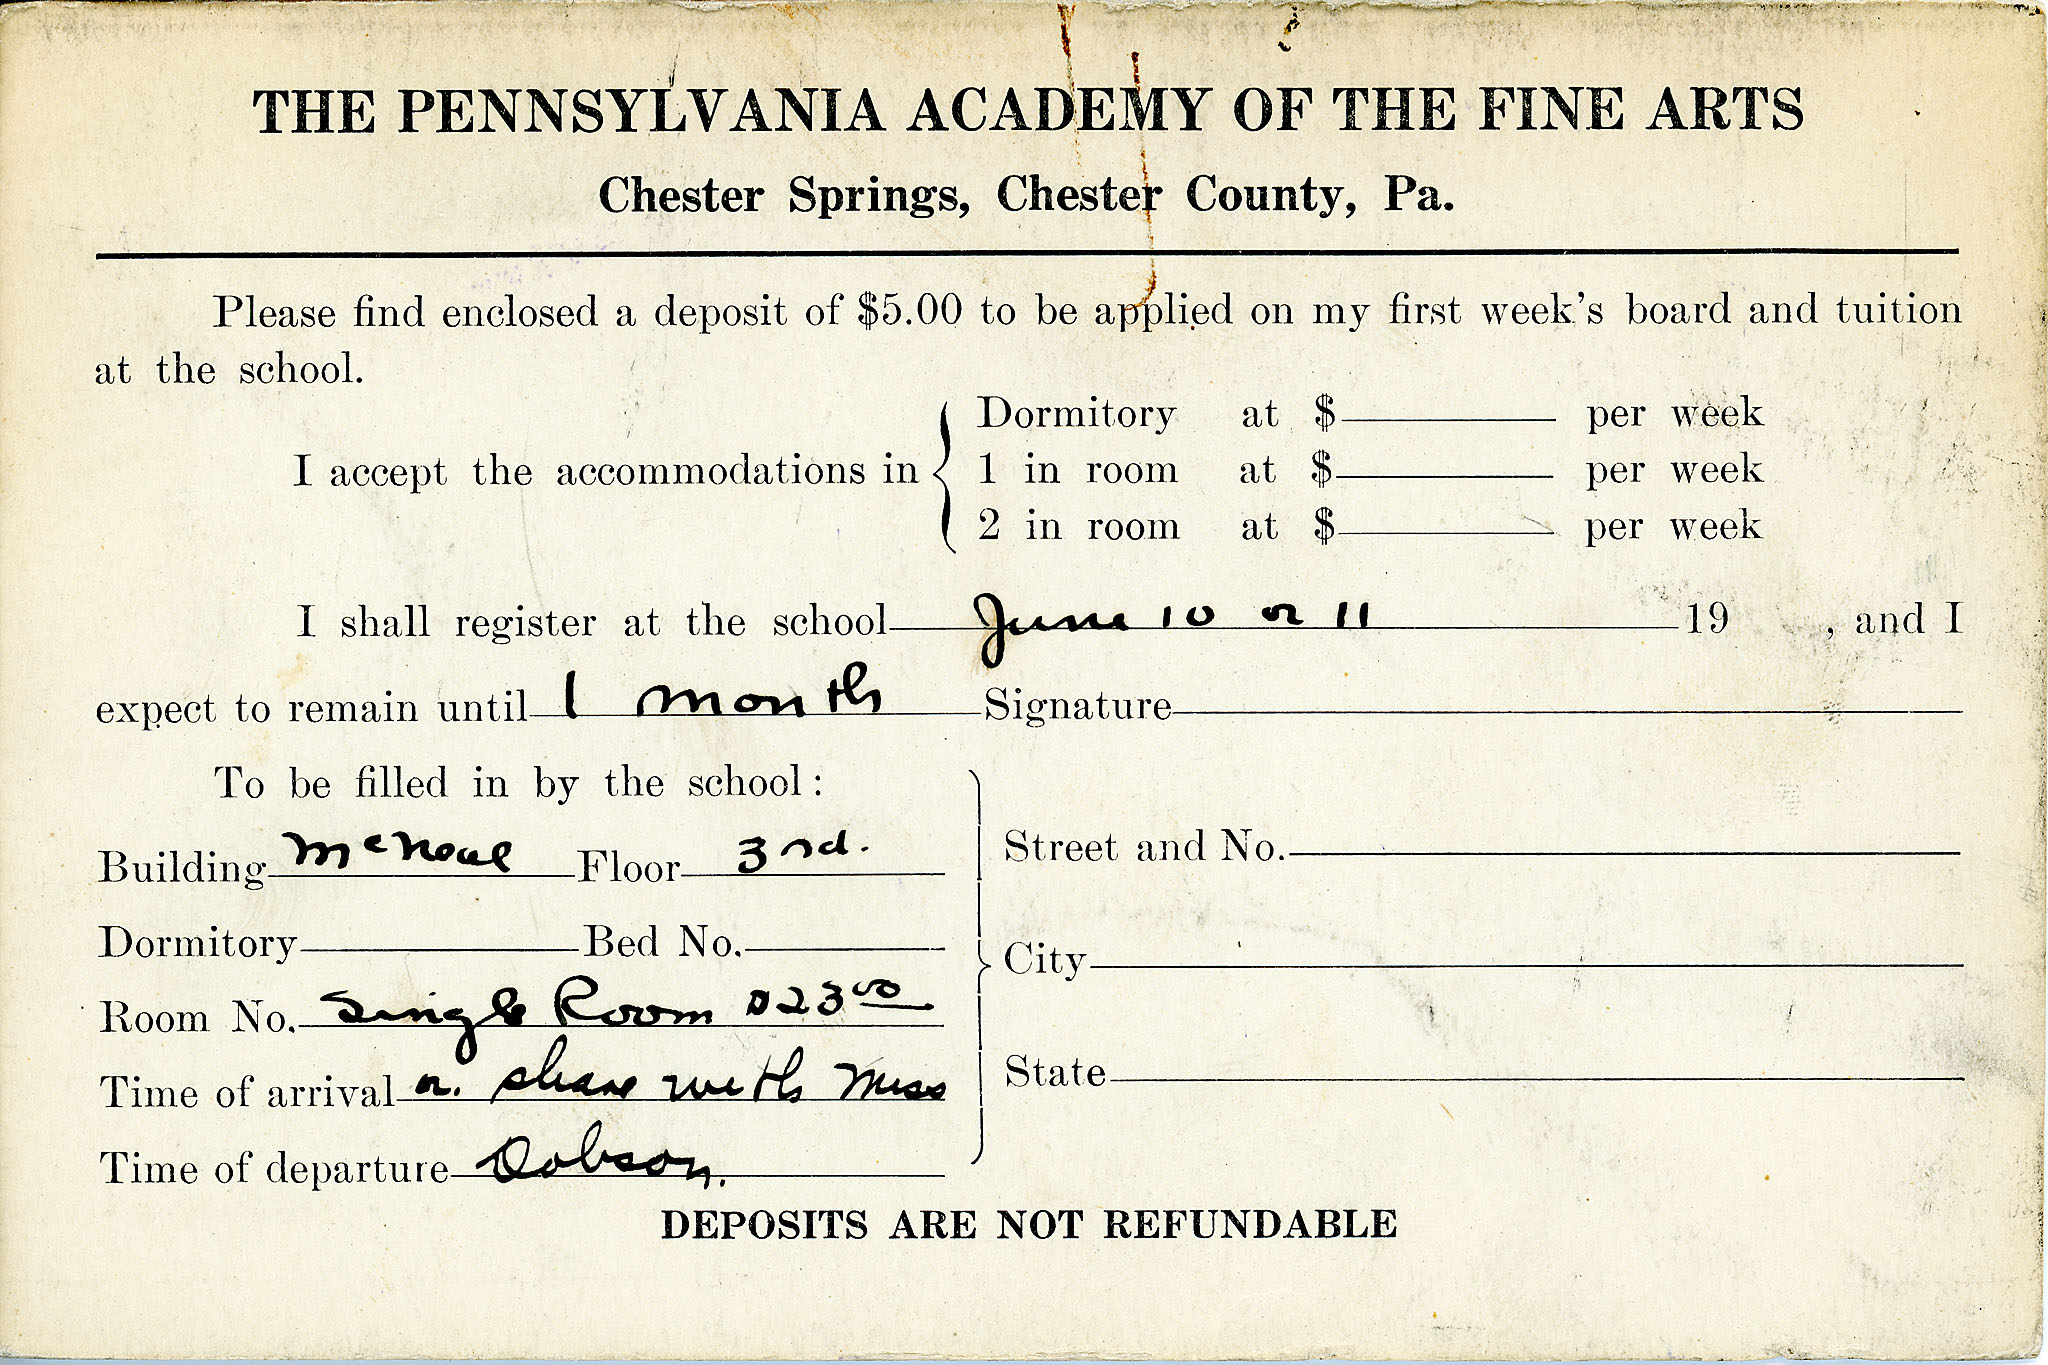 THE PENNSYLVANIA ACADEMY OF THE FINE ARTS
Chester Springs, Chester County, Pa.
Please find enclosed a deposit of $5.00 to be applied on my first week's board and tuition
at the school.
I accept the accommodations in
Dormitory at $ per week
1 in room at $ per week
2 in room at $ per week
I shall register at the school June 10 or 11 19 , and I
expect to remain until 1 month Signature
To be filled in by the school:
Building McNeal Floor 3rd.
Dormitory Bed No.
Room No. Single Room $23.00
Time of arrival or. share with Miss
Time of departure Dobson.
Street and No.
City
State
DEPOSITS ARE NOT REFUNDABLE